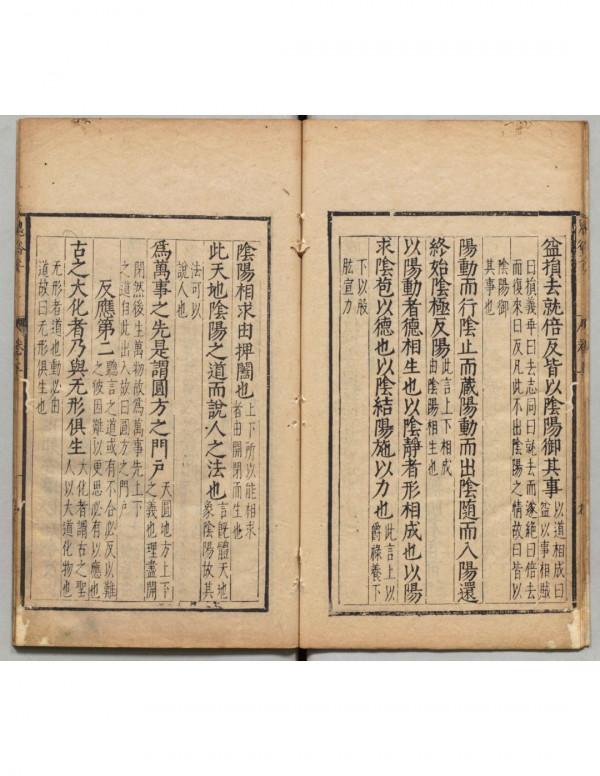 益損去就倍反皆以陰陽御其事
以道相成曰
益以事相賊
曰損義乖曰去志同曰就去而遂絶曰倍去
而復來曰反凡此不出陰陽之情故曰皆以
陰陽御
其事也
陽動而行陰止而藏陽動而出陰隨而入陽還
終始陰極反陽
此言上下相成
由陰陽相生也
以陽動者德相生也以陰靜者形相成也以陽
求陰苞以德也以陰結陽施以力也
此言上以
爵祿養下
下以股
肱宣力
陰陽相求由捭闔也
上下所以能相求
者由開閉而生也
此天地陰陽之道而說人之法也
言既體天地
象陰陽故其
法可以
說人也
爲萬事之先是謂圓方之門戶
天圓地方上下
之義也理盡開
閉然後生萬物故爲萬事先上下
之道自此出入故曰圓方之門戶
反應第二
聽言之道或有不合必反以難
之彼因難以更思必有以應也
古之大化者乃與无形俱生
大化者謂古之聖
人以大道化物也
无形者道也動必由
道故曰无形俱生也